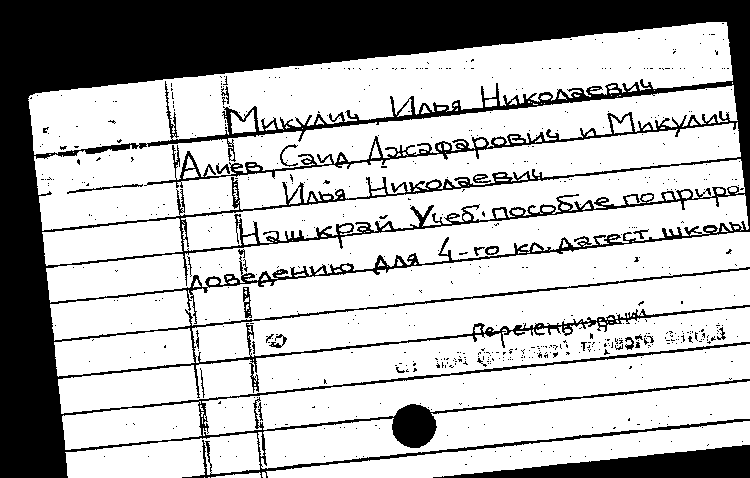 Микулич, Илья Николаевич
Алиев, Саид Джафарович и Микулич,
Илья Николаевич
Наш край Учеб. пособие по приро-
доведению для 4-го кл. дагест. школы
Перечень изданий
под фамилией первого автора